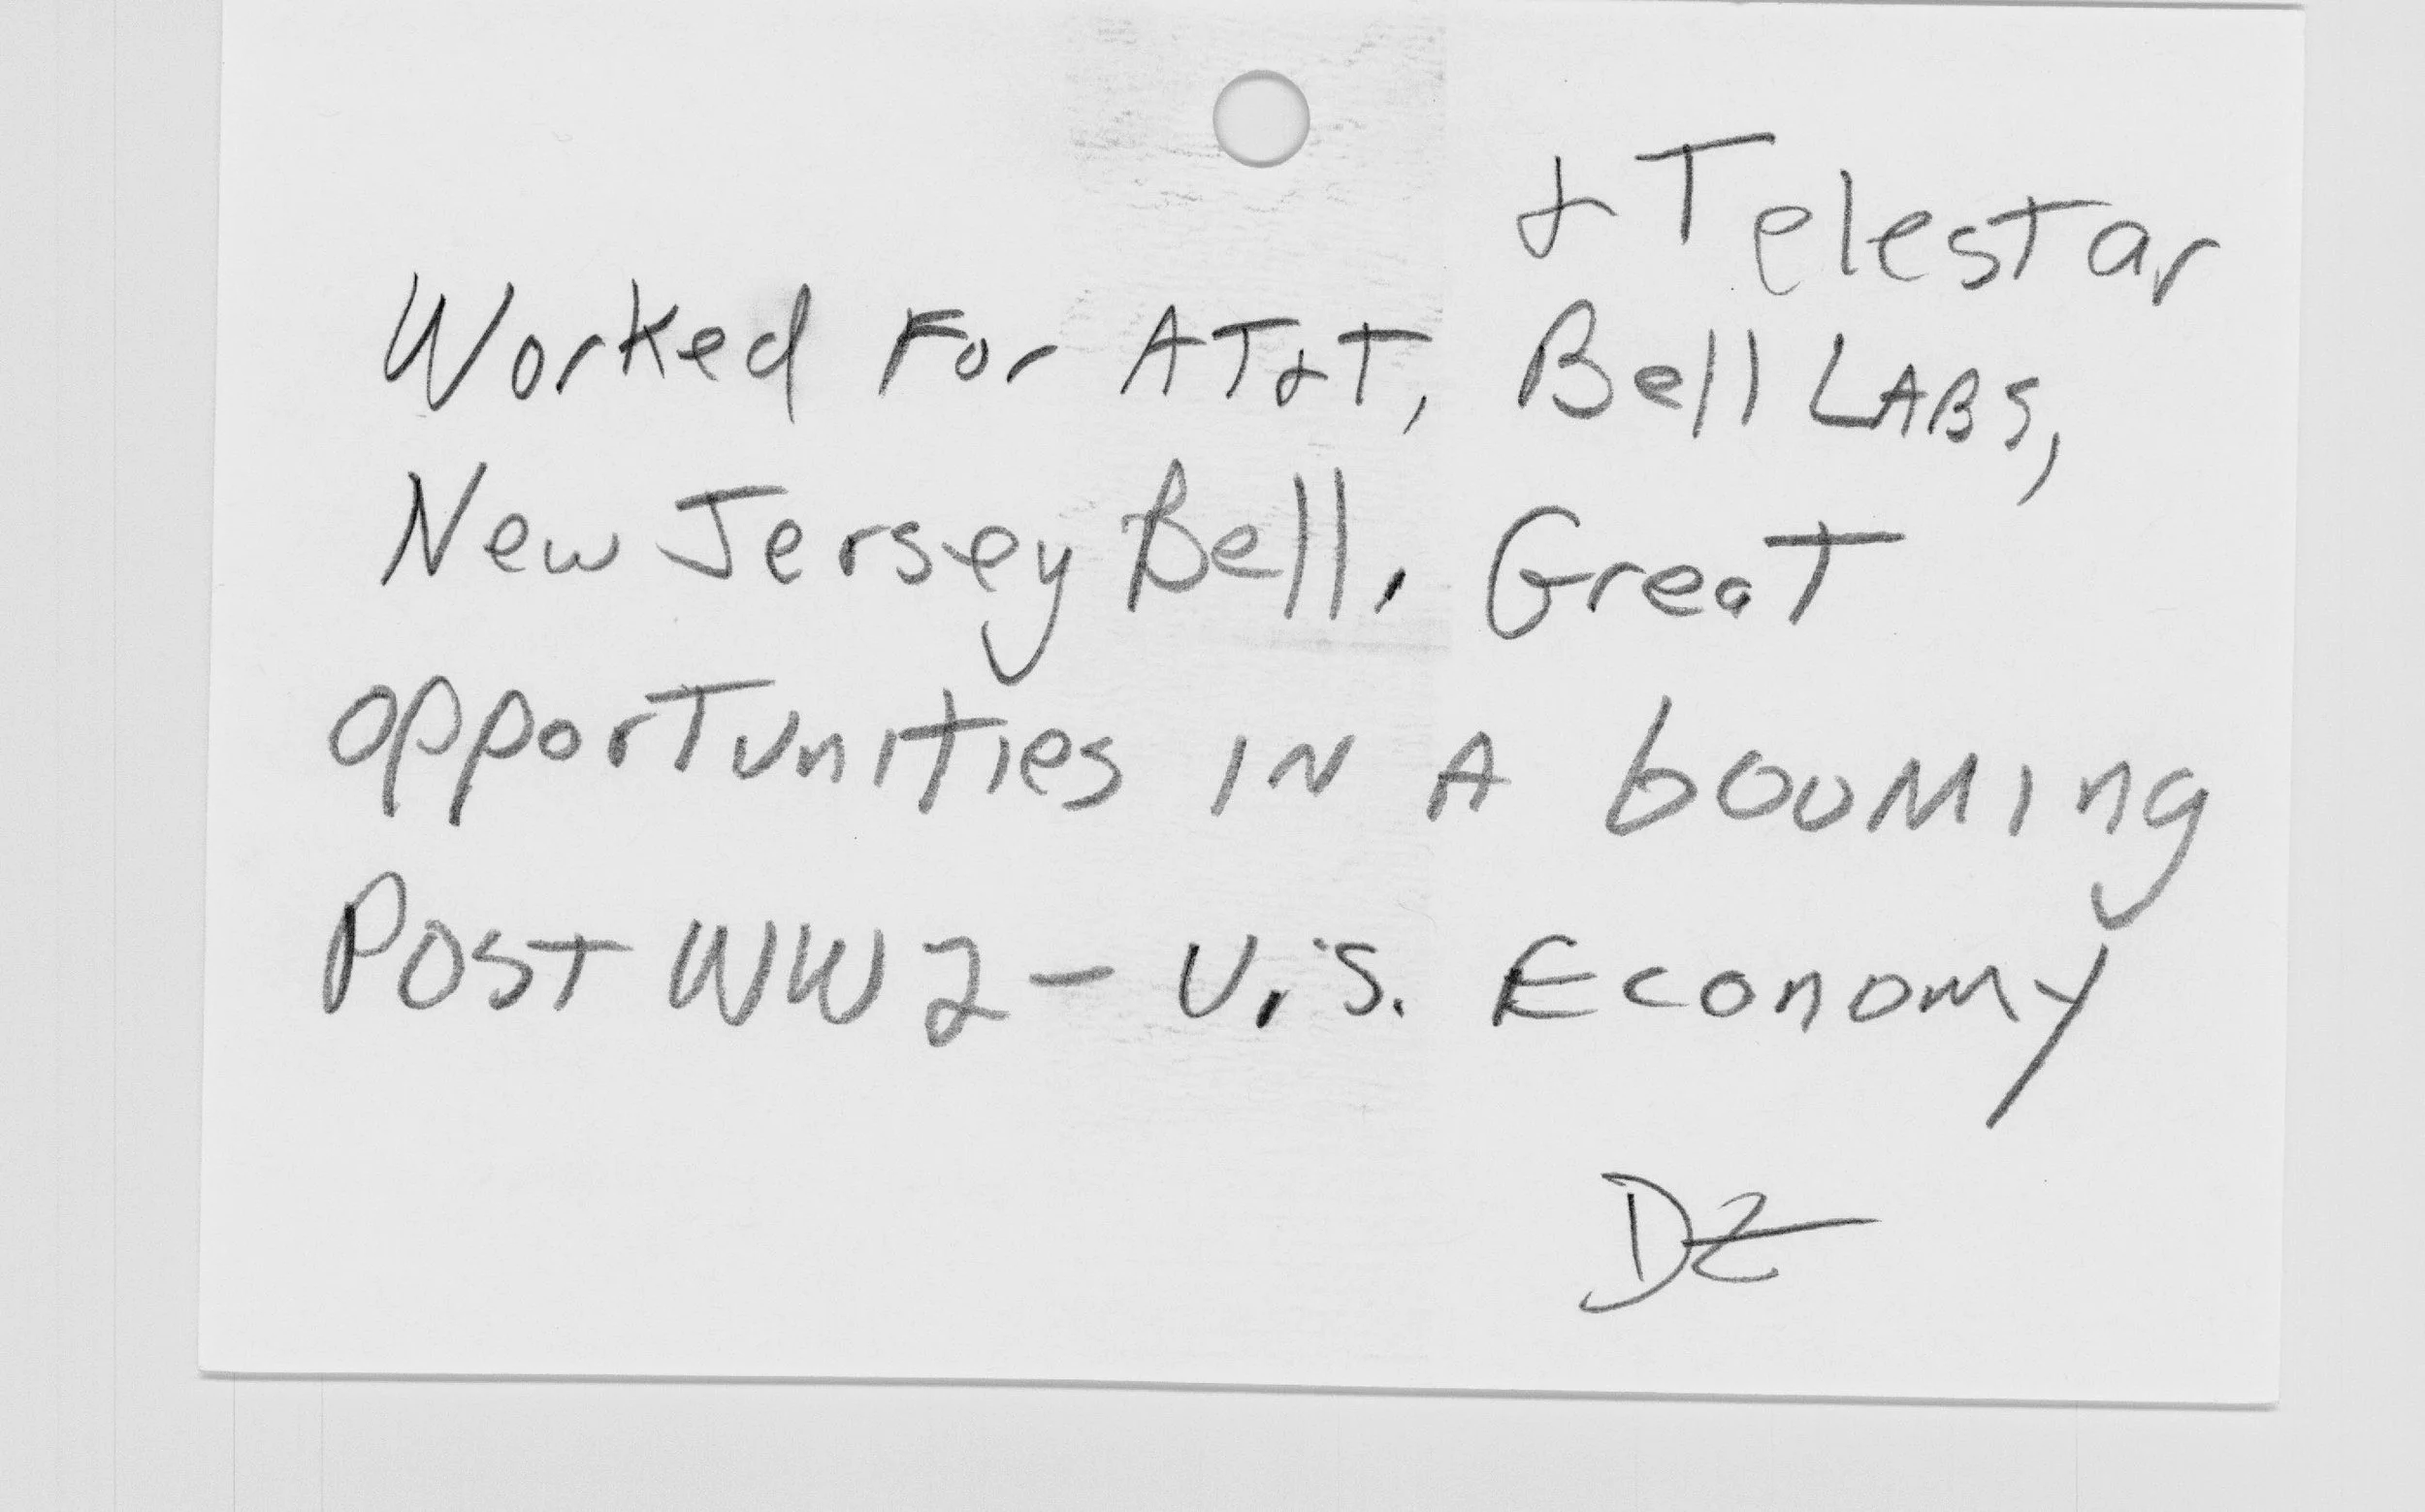 & Telestar
Worked For AT&T, Bell LABS,
New Jersey Bell. Great
opportunities IN A booming
Post WW2 - U.S. Economy
DZ